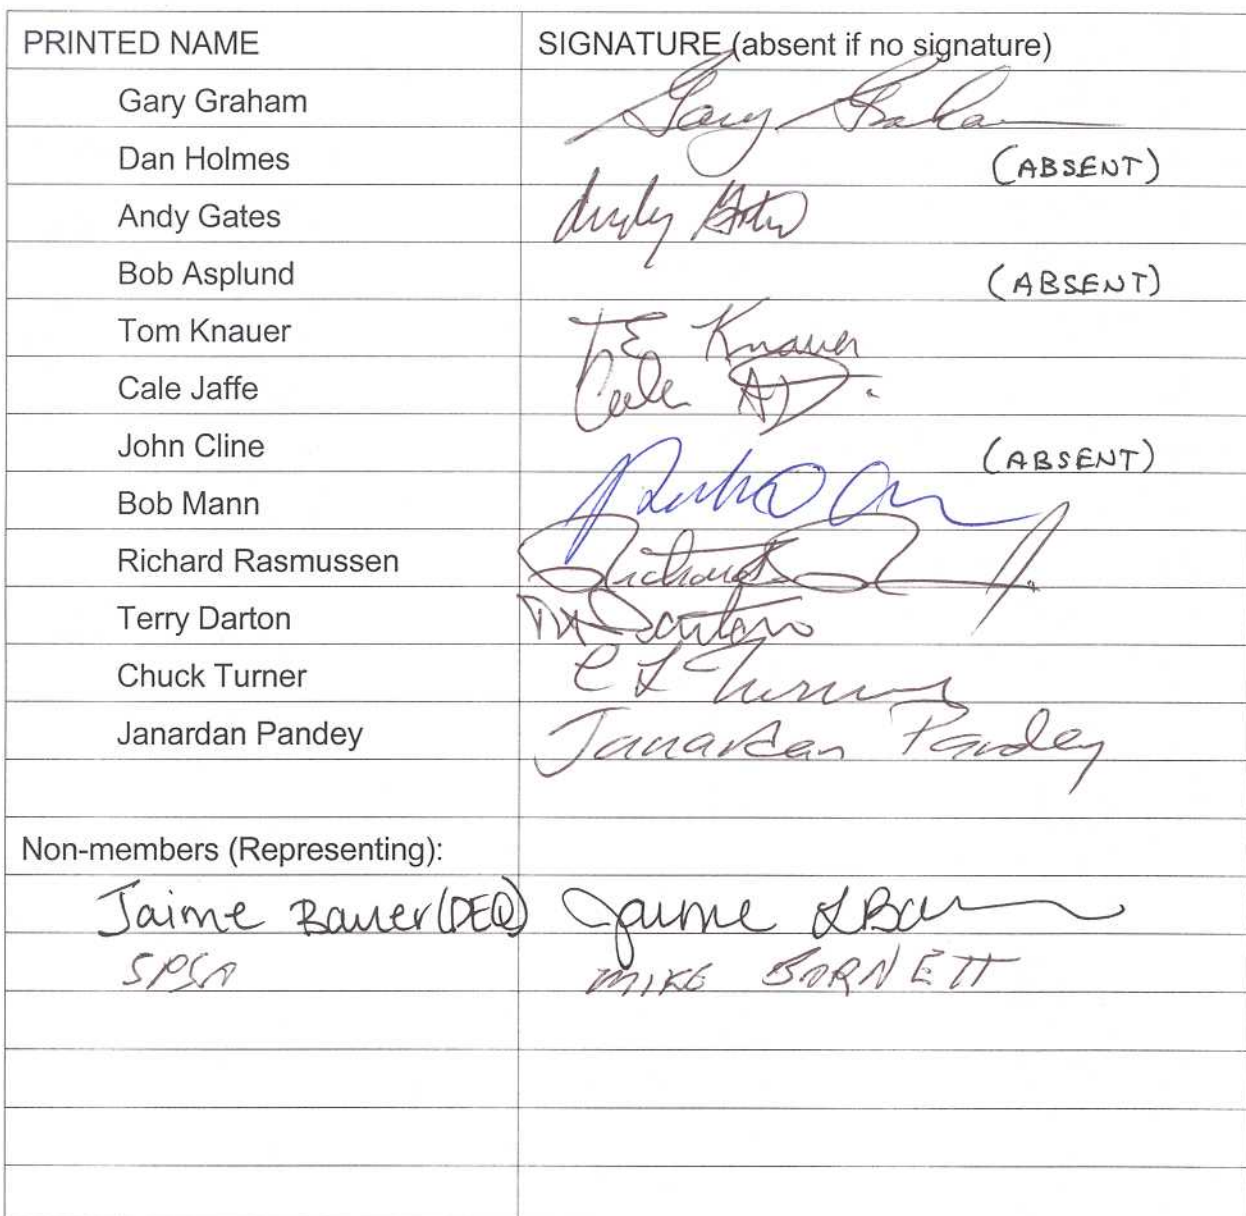 PRINTED NAME SIGNATURE (absent if no signature)
Gary Graham Gary Graham
Dan Holmes (ABSENT)
Andy Gates Andy Gates
Bob Asplund (ABSENT)
Tom Knauer T E Knauer
Cale Jaffe Cale
John Cline (ABSENT)
Bob Mann
Richard Rasmussen Richard
Terry Darton Darton
Chuck Turner C L Turner
Janardan Pandey Janardan Pandey
Non-members (Representing):
Jaime Bauer (DEQ) Jaime L Bau
SPSA MIKE BARNETT